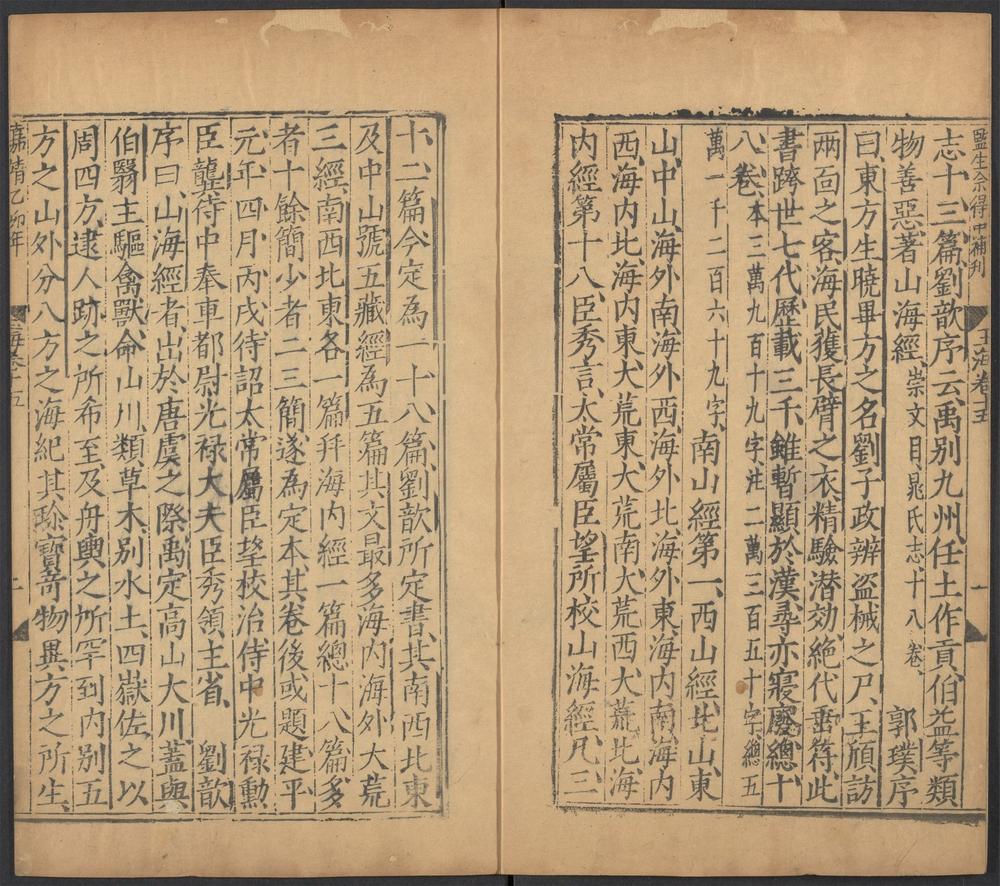 監生佘得中補刋
玉海卷十五
一
志十三篇劉歆序云禹别九州任土作貢伯益等類
物善惡著山海經崇文目晁氏志十八卷郭璞序
曰東方生曉畢方之名劉子政辨盗械之尸王頎訪
兩面之客海民獲長臂之衣精驗潜効絶代垂符此
書跨世七代歷載三千雖暫顯於漢尋亦寢廢總十
八卷本三萬九百十九字注二萬三百五十字總五
萬一千二百六十九字南山經第一西山經北山東
山中山海外南海外西海外北海外東海内南海内
西海内北海内東大荒東大荒南大荒西大荒北海
内經第十八臣秀言太常屬臣望所校山海經凡三
十二篇今定為一十八篇劉歆所定書其南西北東
及中山號五藏經為五篇其文最多海内海外大荒
三經南西北東各一篇并海内經一篇總十八篇多
者十餘簡少者二三簡遂為定本其卷後或題建平
元年四月丙戌待詔太常屬臣望校治侍中光禄勲
臣龔侍中奉車都尉光禄大夫臣秀領主省劉歆
序曰山海經者出於唐虞之際禹定高山大川蓋與
伯翳主驅禽獸命山川類草木别水土四嶽佐之以
周四方逮人跡之所希至及舟輿之所罕到内别五
方之山外分八方之海紀其珍寶竒物異方之所生
嘉靖乙卯年
海卷十五